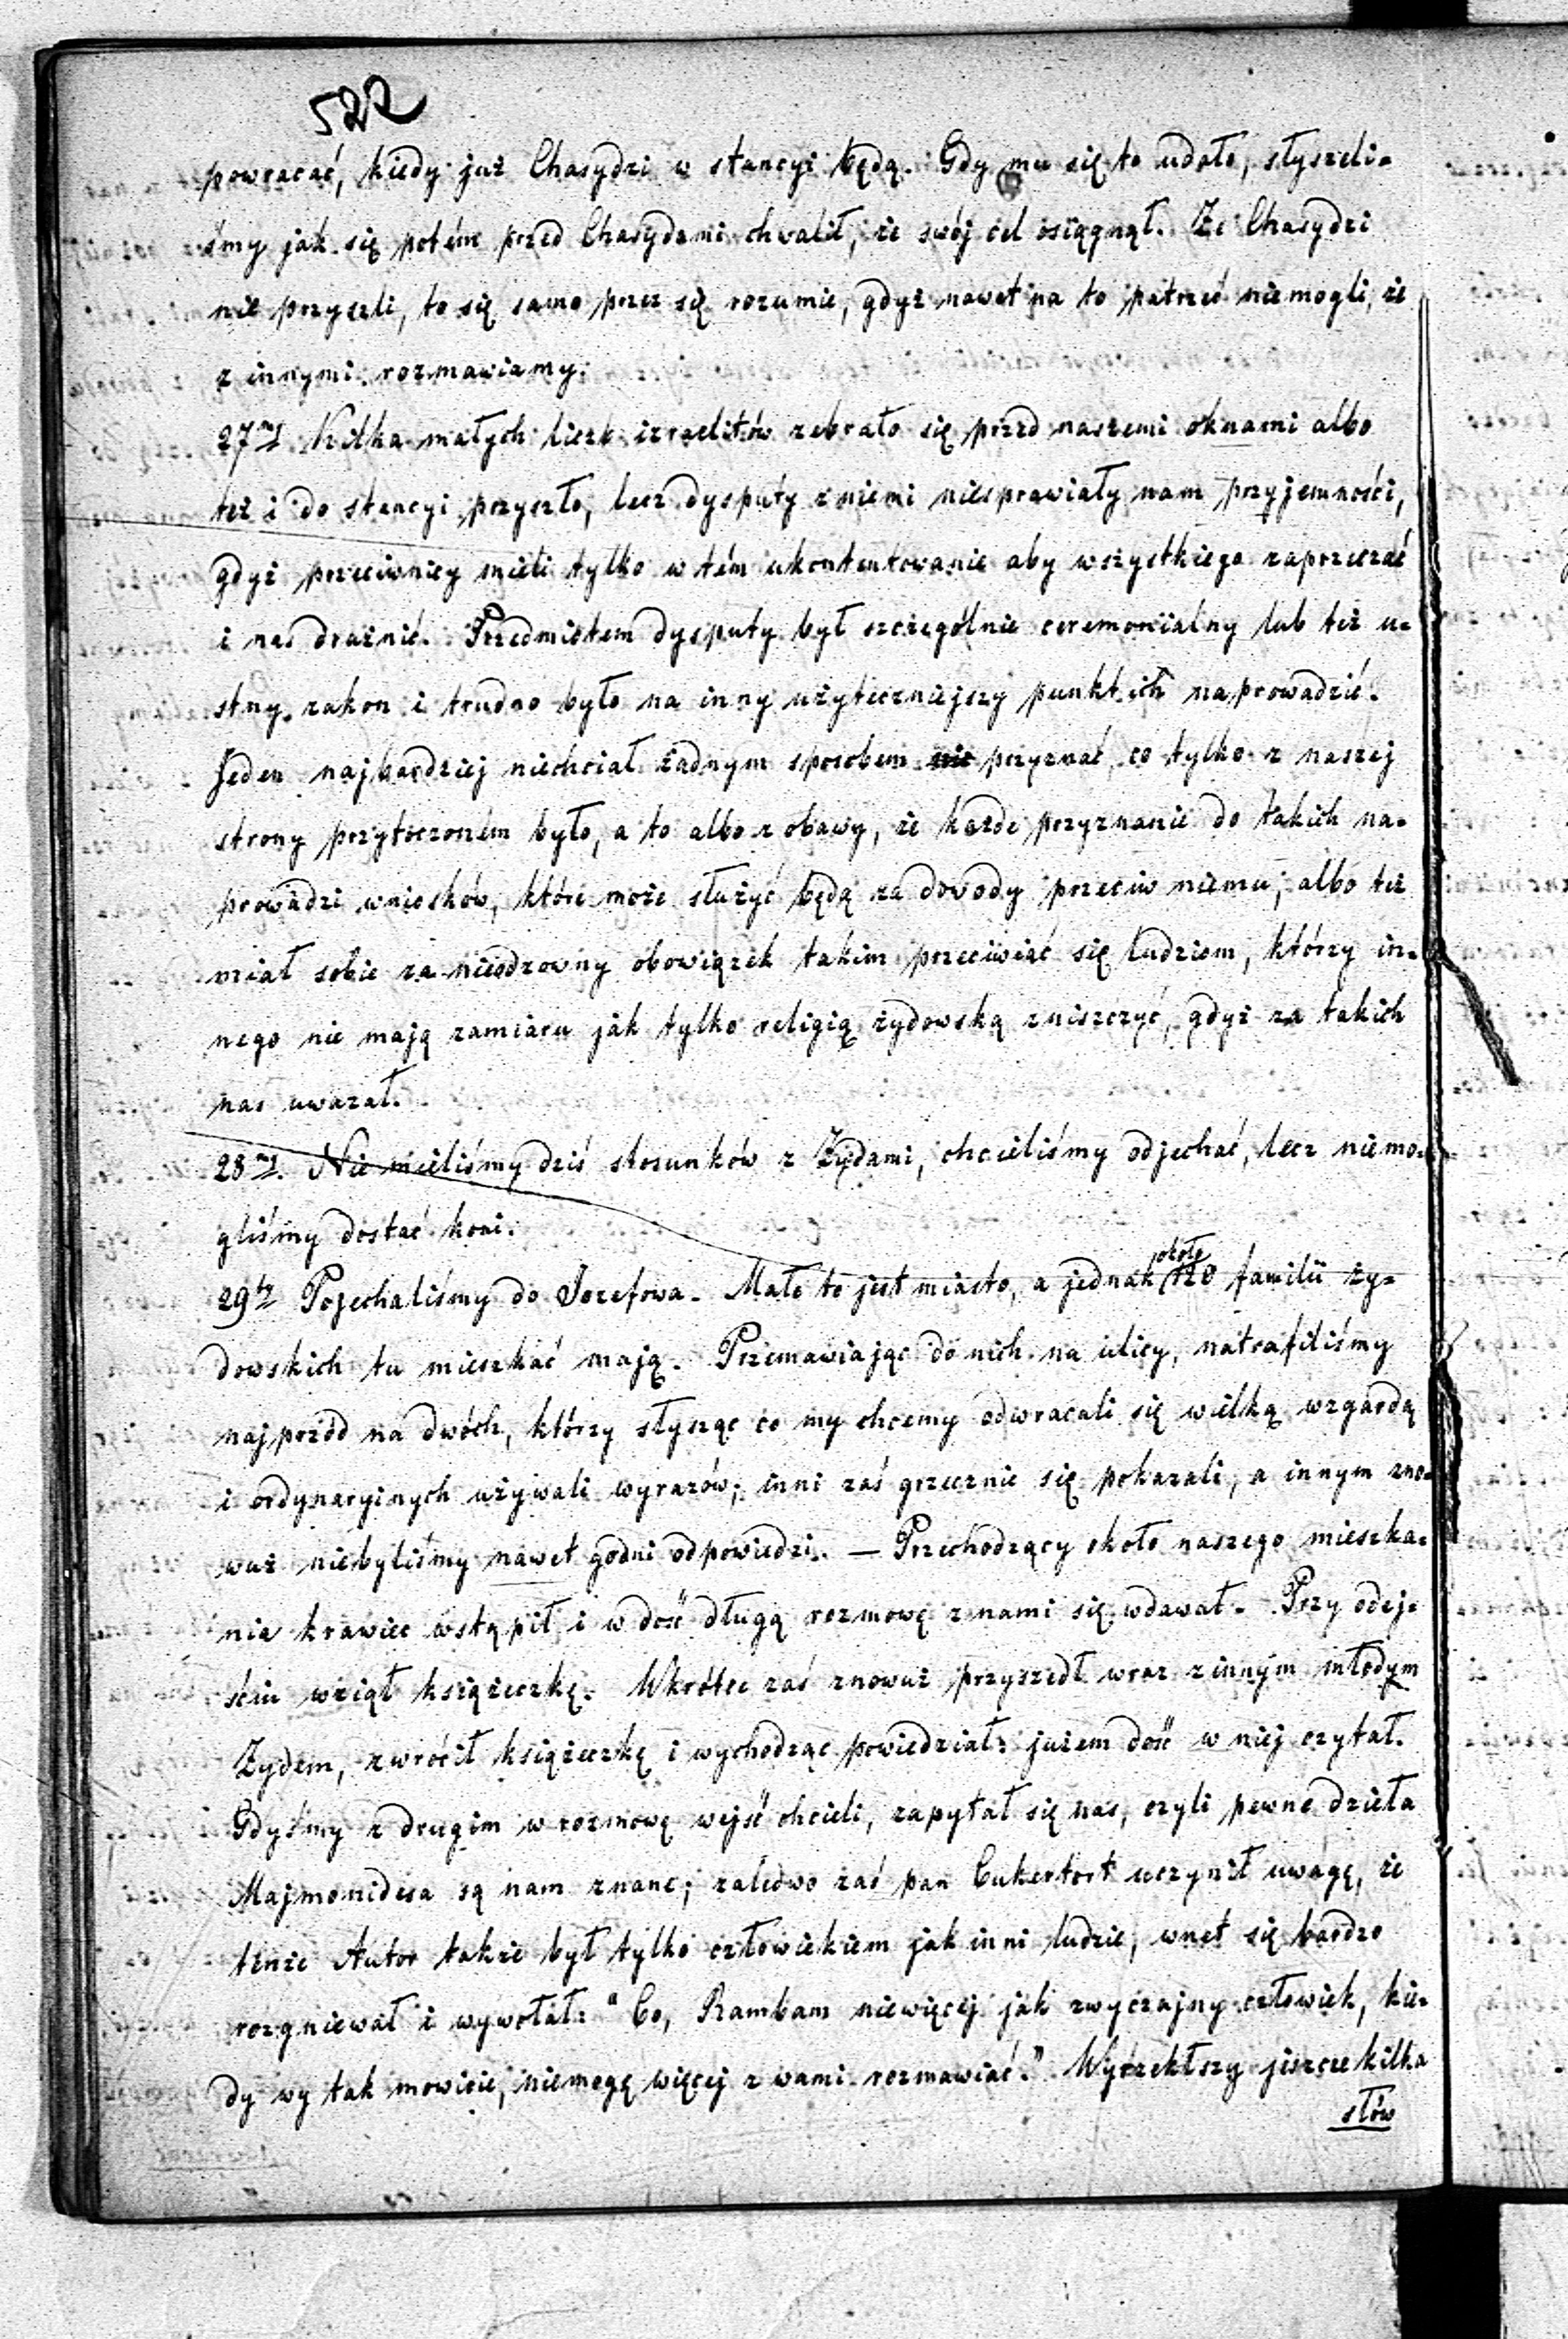 522
powracać, kiedy już Chasydzi w stancyi będą. Gdy mu się to udało, słyszeli-
śmy jak się potém przed Chasydami chwalił, że swój cel osiągnął. Że Chasydzi
nie przyszli, to się samo przez się rozumie, gdyż nawet na to patrzeć niemogli, że
z innymi rozmawiamy.
27my Kilka małych liczb izraelitów zebrało się przed naszemi oknami albo
też i do stancyi przyszło, lecz dysputy z niemi niesprawiały nam przyjemności,
gdyż przeciwnicy mieli tylko w tém ukontentowanie aby wszystkiego zaprzeczać
i nas drażnić. Przedmiotem dysputy był szczególnie ceremonialny lub też u-
stny zakon i trudno było na inny użyteczniejszy punkt ich naprowadzić.
Jeden najbardziej niechciał żadnym sposobem nic przyznać, co tylko z naszej
strony przytoczoném było, a to albo z obawy, że każde przyznanie do takich na-
prowadzi wniosków, które może służyć będą za dowody przeciw niemu, albo też
miał sobie za nieodzowny obowiązek takim przeciwiać się ludziom, którzy in-
nego nie mają zamiaru jak tylko religią żydowską zniszczyć, gdyż za takich
nas uważał.
28my. Nie mieliśmy dziś stosunków z Żydami, chcieliśmy odjechać, lecz niemo-
gliśmy dostać koni.
29ty Pojechaliśmy do Jozefowa. Małe to jest miasto, a jednak około 120 familii ży-
dowskich tu mieszkać mają. Przemawiając do nich na ulicy, natrafiliśmy
najprzód na dwóch, którzy słysząc co my chcemy odwracali się wielką wzgardą
i ordynaryjnych używali wyrazów; inni zaś grzecznie się pokazali, a innym zno-
wuż niebyliśmy nawet godni odpowiedzi. — Przechodzący około naszego mieszka-
nia krawiec wstąpił i w dość długą rozmowę z nami się wdawał. Przy odej-
ściu wziął książeczkę. Wkrótce zaś znowuż przyszedł wraz z innym młodym
Żydem, zwrócił książeczkę i wychodząc powiedział: jużem dość w niej czytał.
Gdyśmy z drugim w rozmowę wejść chcieli, zapytał się nas, czyli pewne dzieła
Majmonidesa są nam znane; zaledwo zaś pan Cukertort uczynił uwagę, że
tenże Autor także był tylko człowiekiem jak inni ludzie, wnet się bardzo
rozgniewał i wywołał: "Co, Rambam niewięcej jak zwyczajny człowiek, kie-
dy wy tak mowicie, niemogę więcej z wami rozmawiać." Wyrzekłszy jeszcze kilka
słów